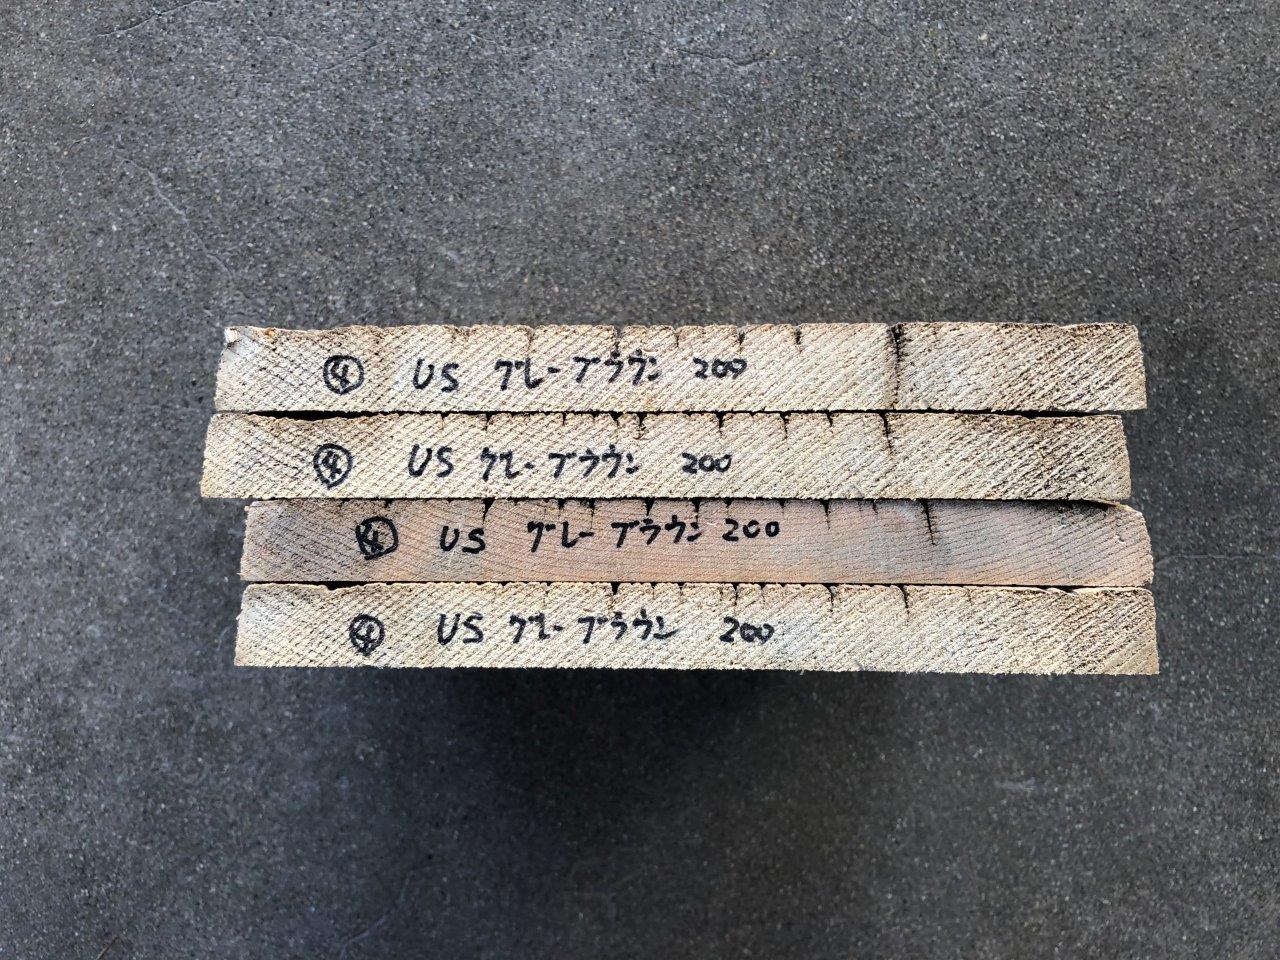 ④ US グレーブラウン 200
④ US グレーブラウン 200
④ US グレーブラウン 200
④ US グレーブラウン 200